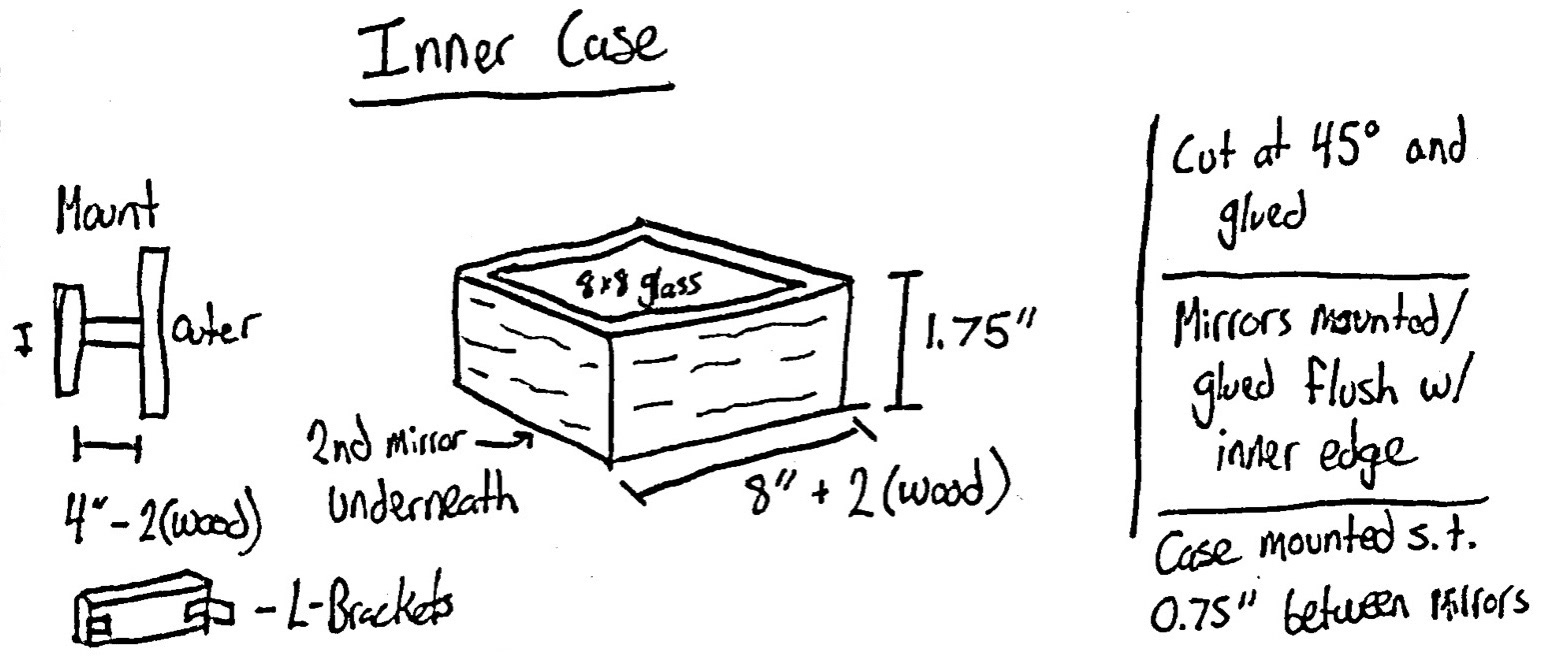 Inner Case
Mount
I
outer
4" - 2(wood)
- L-Brackets
8x8 glass
1.75"
2nd mirror
underneath
8" + 2(wood)
Cut at 45° and
glued
Mirrors mounted/
glued flush w/
inner edge
Case mounted s.t.
0.75" between mirrors